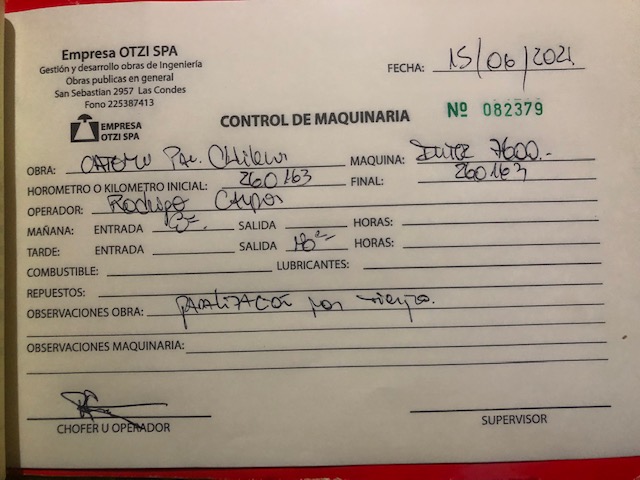 Empresa OTZI SPA
Gestión y desarrollo obras de Ingeniería
Obras publicas en general
San Sebastian 2957 Las Condes
Fono 225387413
EMPRESA
OTZI SPA
FECHA: 15/06/2021
CONTROL DE MAQUINARIA
Nº 082379
OBRA: MAQUINA:
HOROMETRO O KILOMETRO INICIAL: 260163 FINAL: 260163
OPERADOR: Rodrigo
MAÑANA: ENTRADA SALIDA HORAS:
TARDE: ENTRADA SALIDA 18⁰⁰ HORAS:
COMBUSTIBLE: LUBRICANTES:
REPUESTOS:
OBSERVACIONES OBRA: paralizacion por viento.
OBSERVACIONES MAQUINARIA:
CHOFER U OPERADOR SUPERVISOR